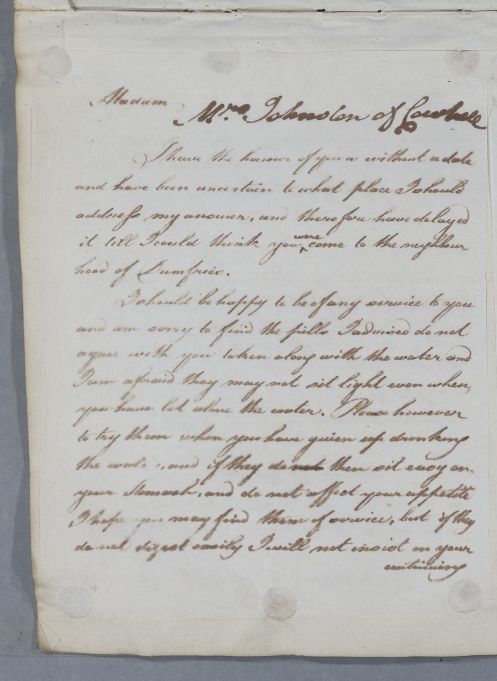 Madam
Mrs. Johnston of Cowhill
I have the honour of yours without a date
and have been uncertain to what place I should
address my answer, and therefore have delayed
it till I could think you were come to the neighbour
hood of Dumfries.
I should be happy to be of any service to you
and am sorry to find the pills I advised do not
agree with you taken along with the water and
I am afraid they may not sit light even when,
you have let alone the water. Please however
to try them when you have given up drinking
the water, and if they do not then sit easy on
your Stomach, and do not affect your appetite
I hope you may find them of service, but if they
do not digest easily I will not insist on your
continuing